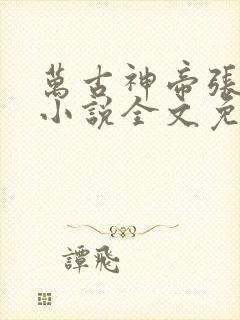 萬古神帝張
小說全文免
譚飛